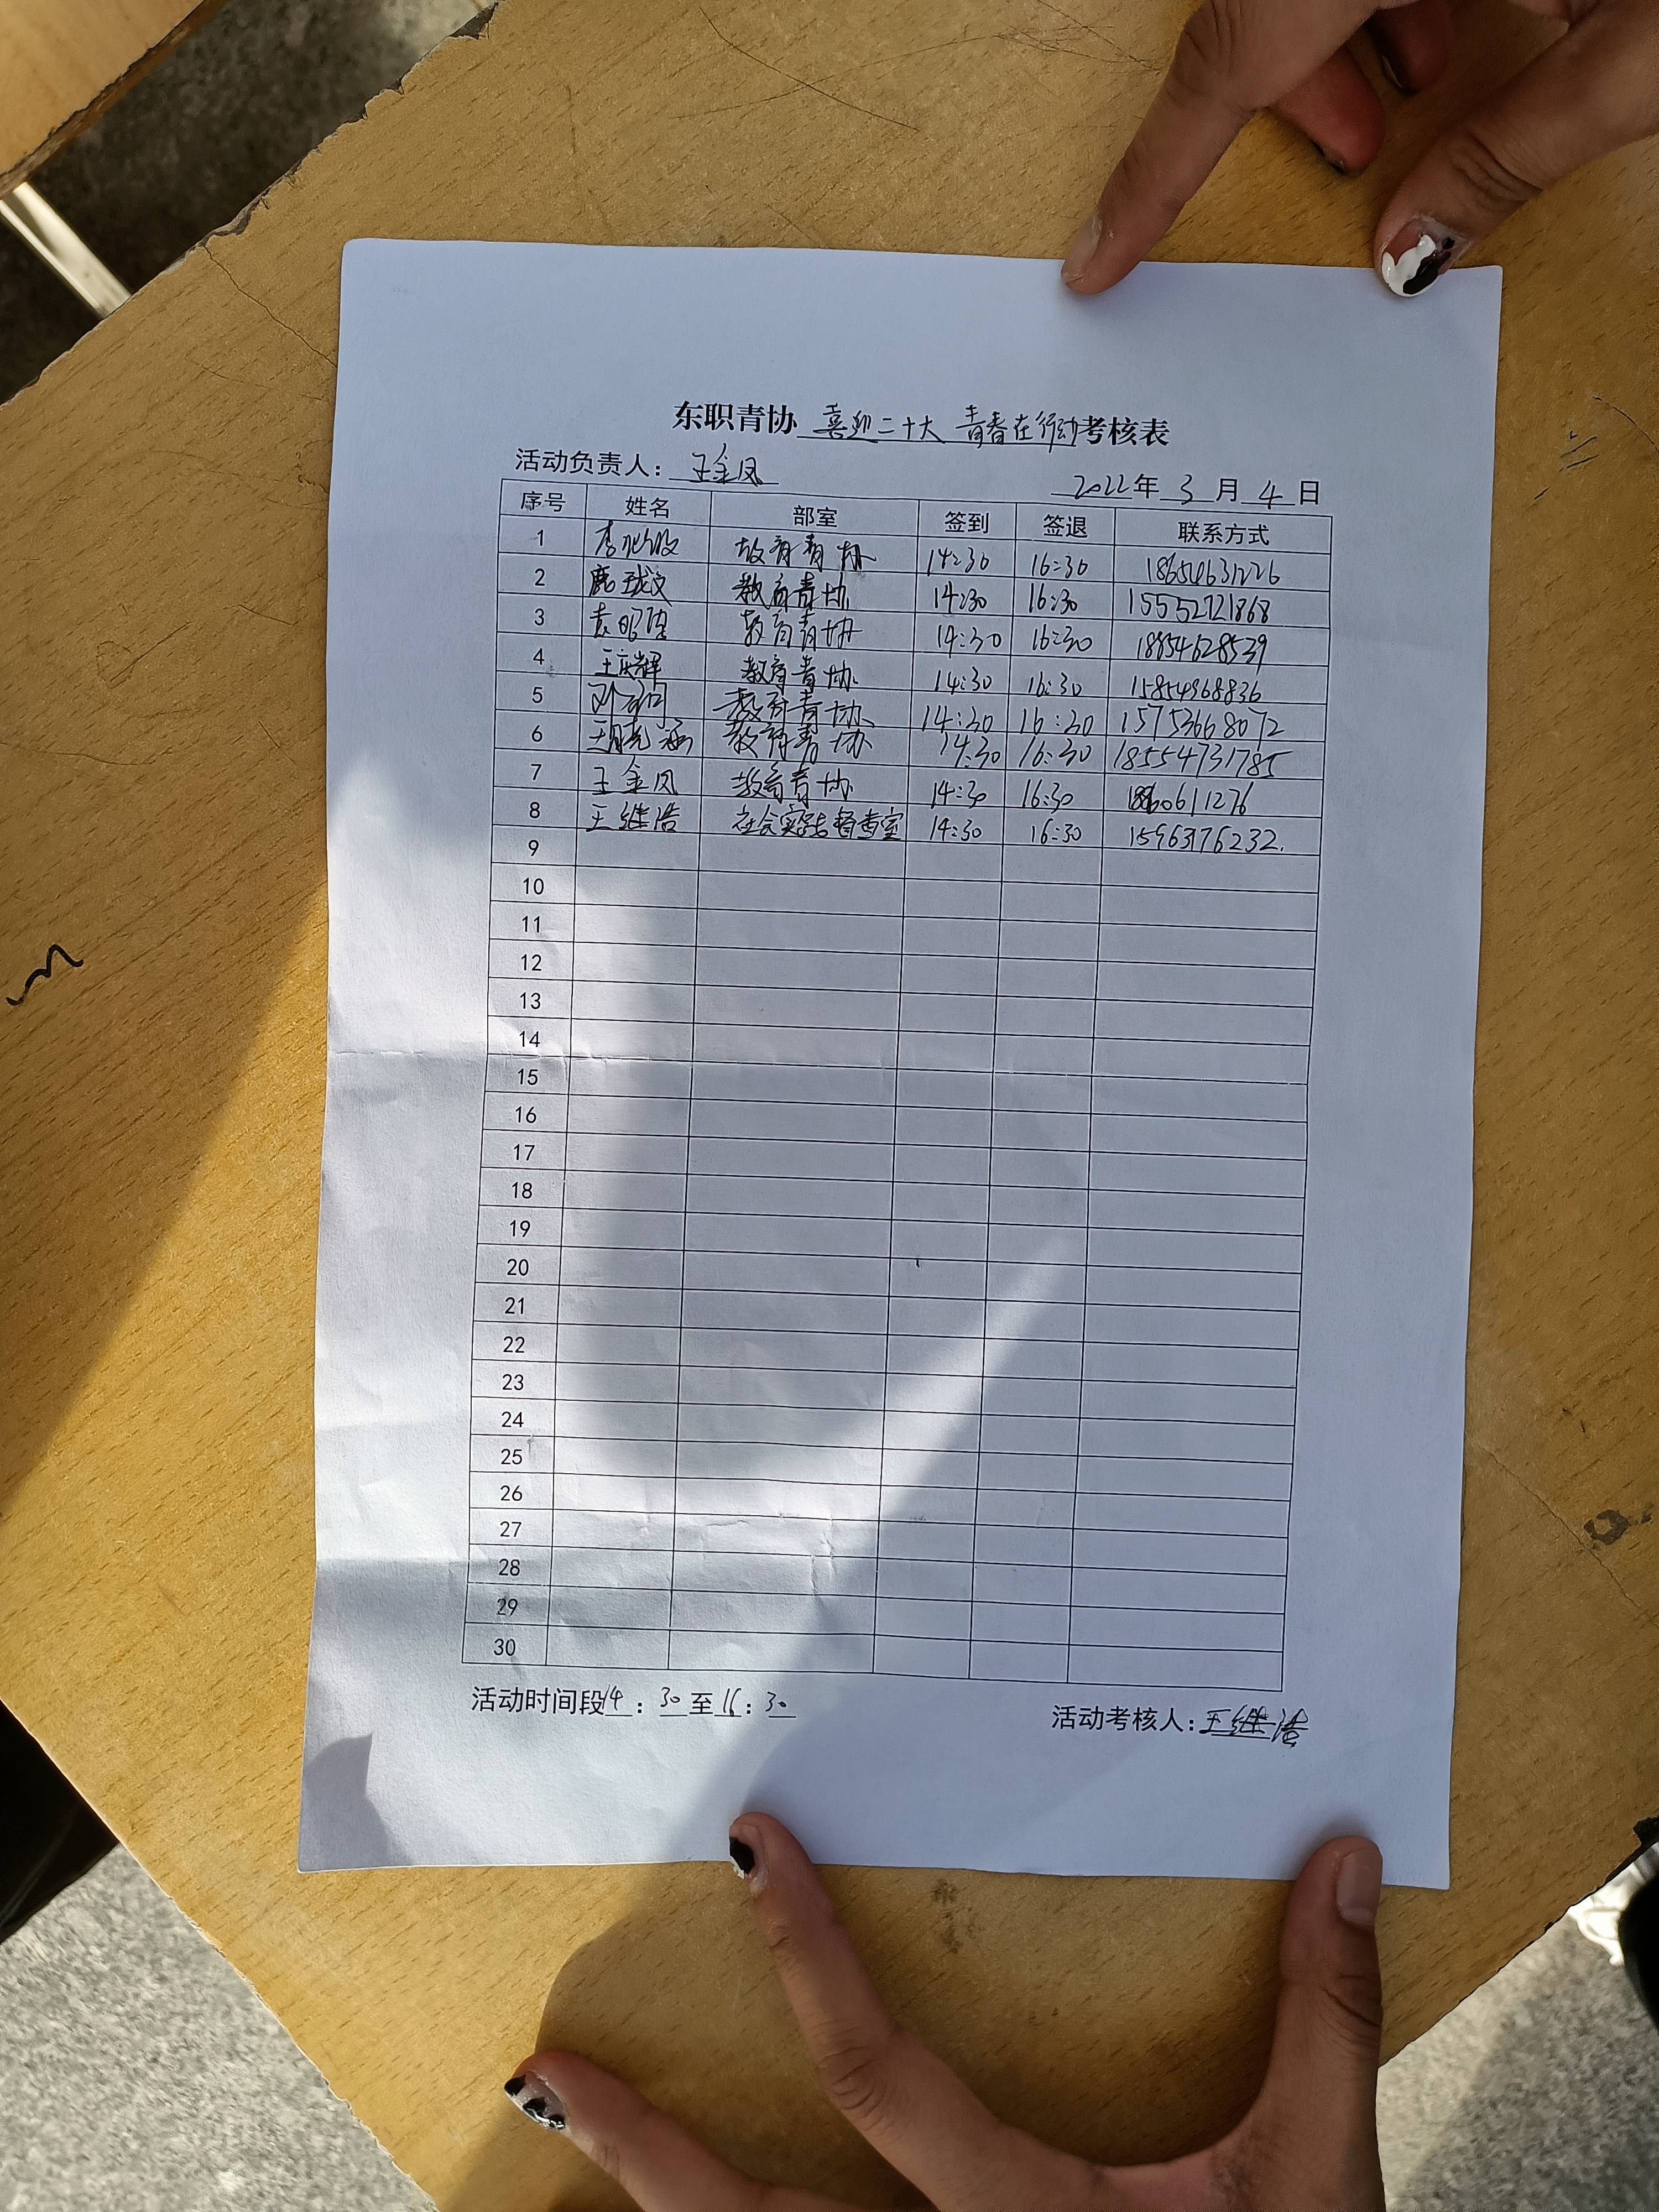 东职青协 喜迎二十大 青春在行动 考核表
活动负责人：王金凤 2022年 3 月 4 日
序号 姓名 部室 签到 签退 联系方式
1 教育青协 14:30 16:30 18654631226
2 鹿珑文 教育青协 14:30 16:30 15552721868
3 袁明 教育青协 14:30 16:30 18854628539
4 王庆辉 教育青协 14:30 16:30 15854968836
5 教育青协 14:30 16:30 15753668072
6 王晓涵 教育青协 14:30 16:30 18554731785
7 王金凤 教育青协 14:30 16:30
8 王继浩 社会实践督查室 14:30 16:30 15963176232.
9
10
11
12
13
14
15
16
17
18
19
20
21
22
23
24
25
26
27
28
29
30
活动时间段14：30至16：30 活动考核人：王继浩